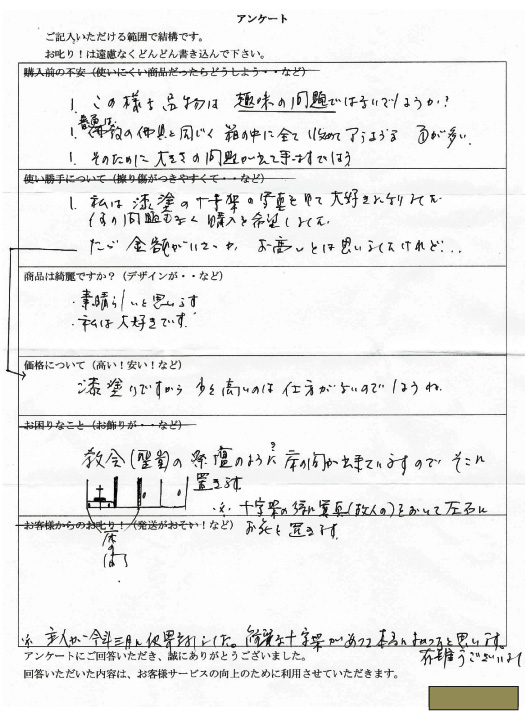 アンケート
ご記入いただける範囲で結構です。
お叱り！は遠慮なくどんどん書き込んで下さい。
購入前の不安（使いにくい商品だったらどうしよう・・など）
1. この様な品物は 趣味の問題ではないでしょうか？
1. 普通は 仏教の仏具と同じく 箱の中に全て 収めてしまうような 方が多い、
1. そのために 大きさの問題が出て来ますでしょう
使い勝手について（擦り傷がつきやすくて・・など）
1. 私は 漆塗の十字架の写真を見て 大好きになりました
何の問題もなく 購入を希望しました
ただ 金額が お高いとは思いましたけれど...
商品は綺麗ですか？（デザインが・・など）
・素晴らしいと思います
・私は大好きです。
価格について（高い！安い！など）
漆塗りですから 多少高いのは 仕方がないのでしょうね
お困りなこと（お飾りが・・など）
教会（聖堂）の祭壇のように 床の間が出来ていますので そこに
置きます
※ 十字架の横に写真（故人の）をおいて左右に
お花を置きます。
お客様からのお叱り！（発送がおそい！など）
床のま
※ 主人が今年三月に他界されました。綺麗な十字架があって本当によかったと思います。
有難うございます
アンケートにご回答いただき、誠にありがとうございました。
回答いただいた内容は、お客様サービスの向上のために利用させていただきます。